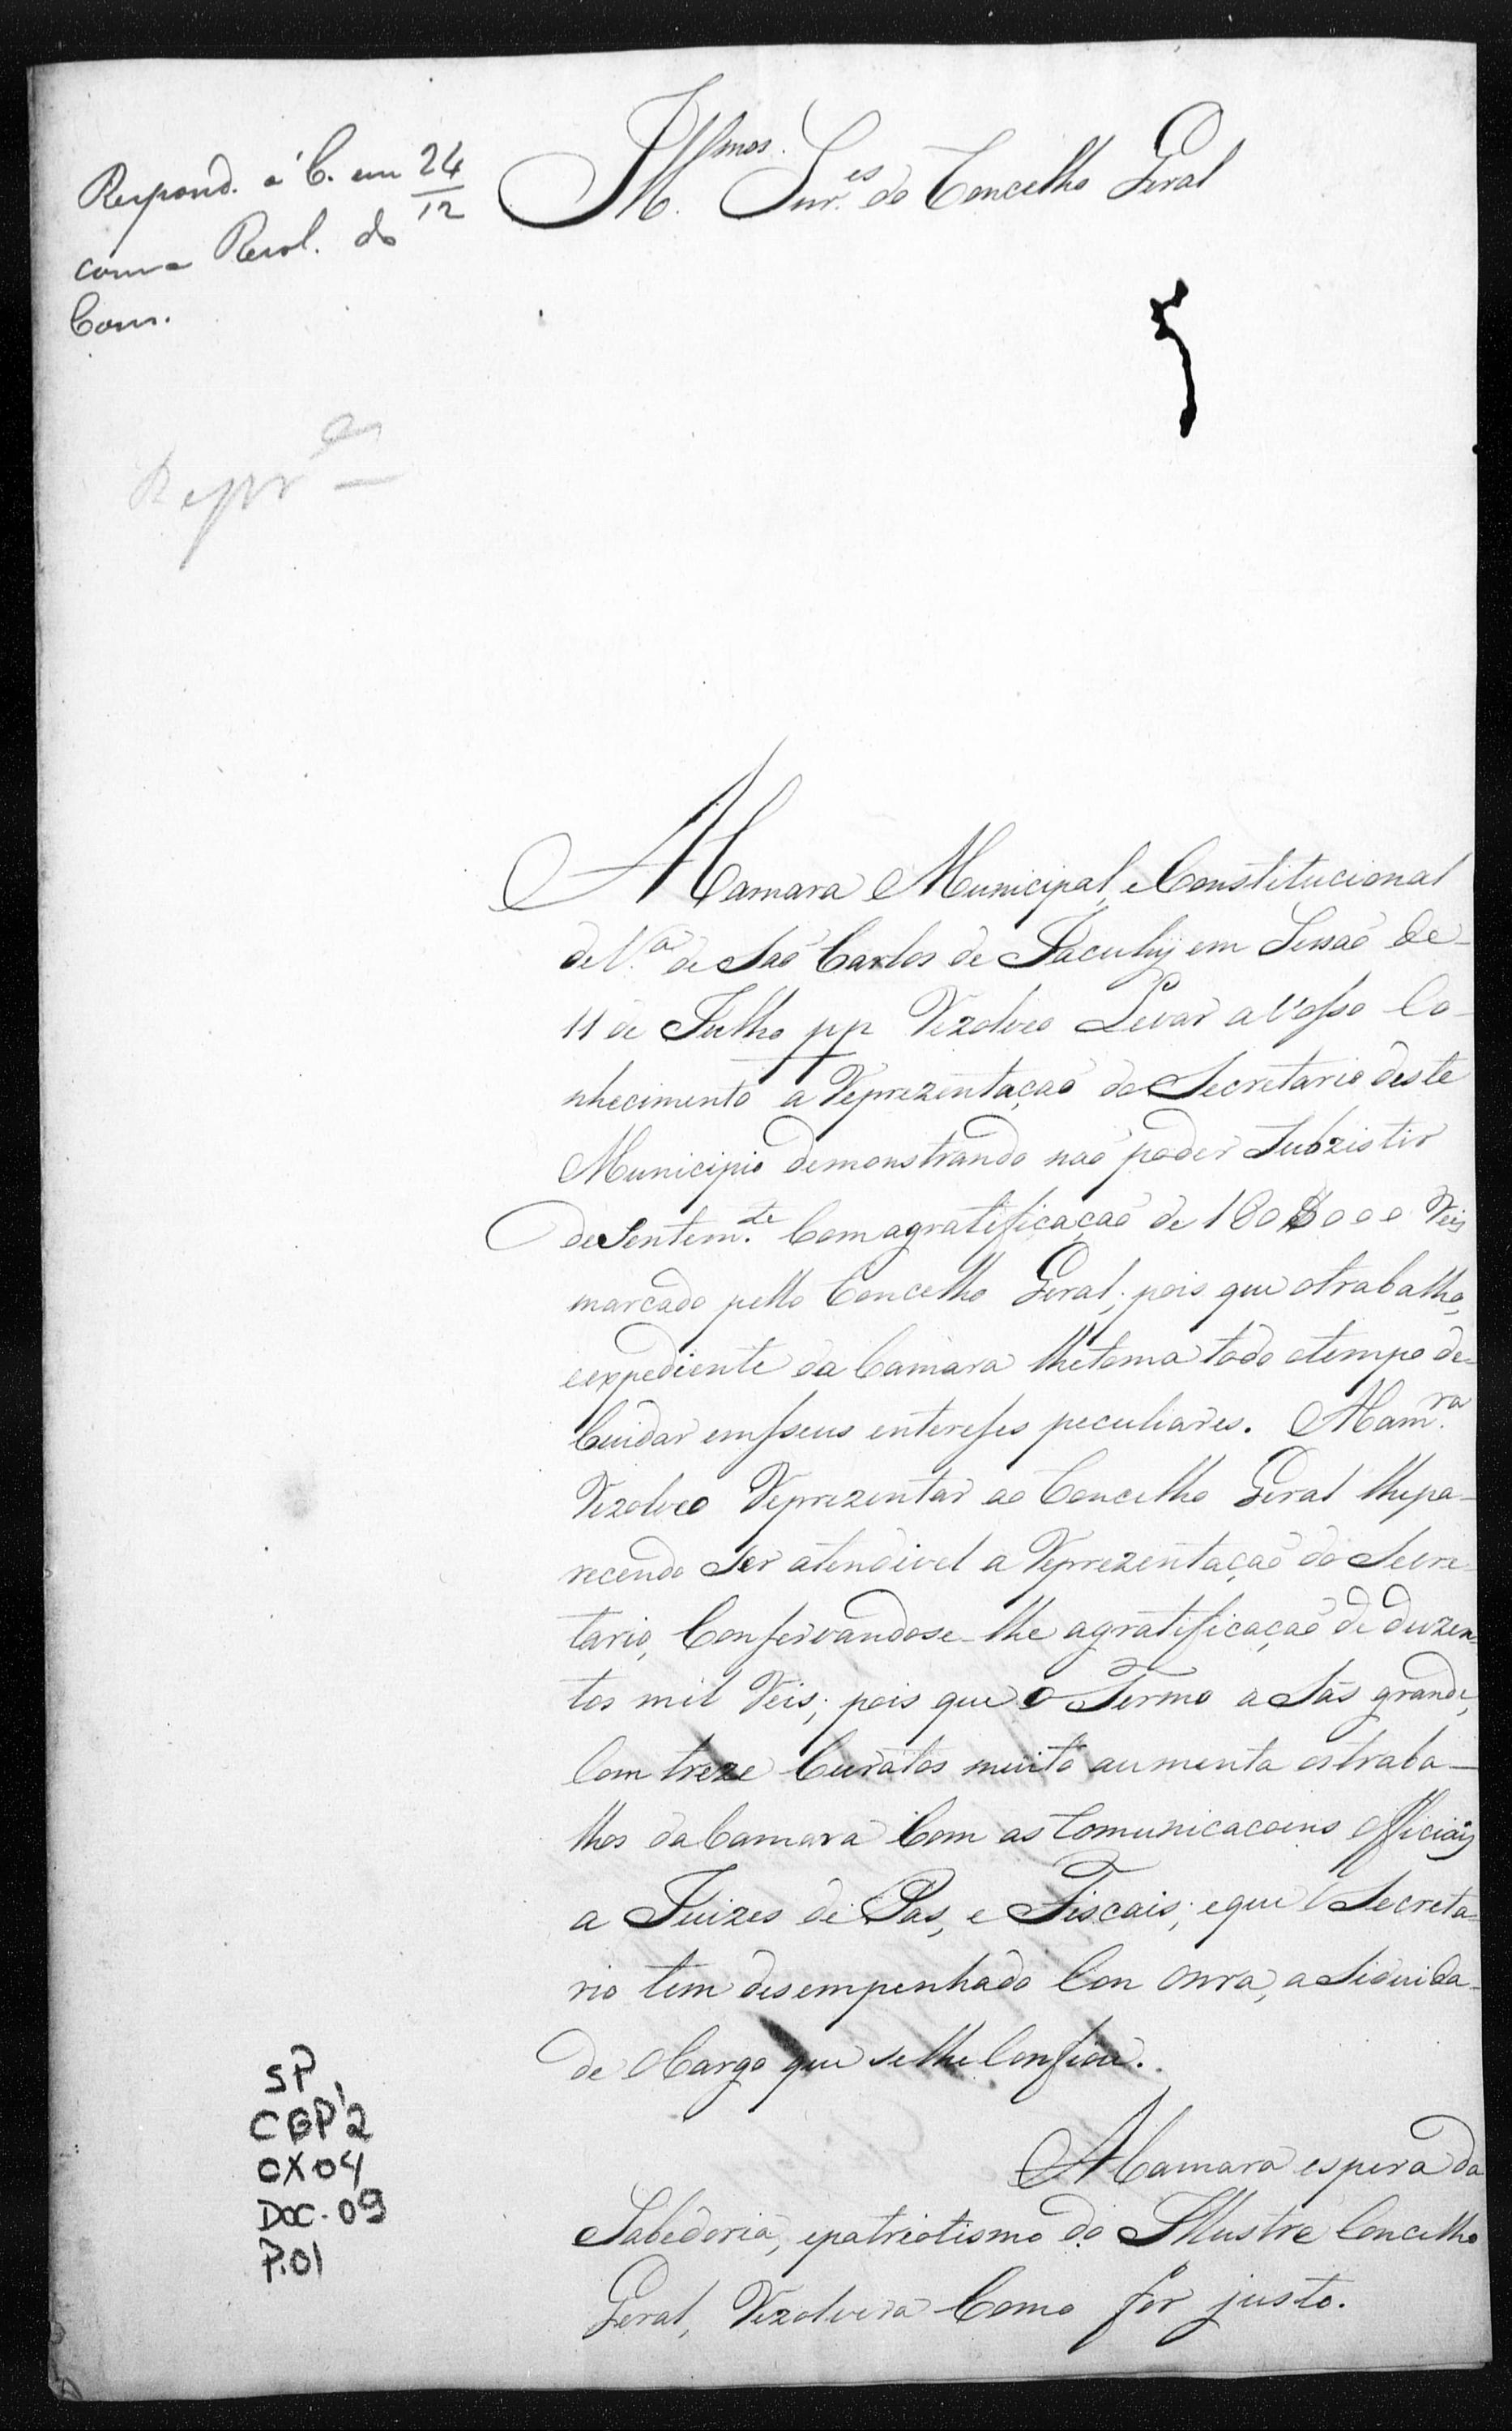 Respond. á C. em 24/12
com a Resol. do
Cons.
Illmos. Snr.es do Concelho Geral
5
Repr.es
A Camara Municipal, e Constitucional
de V.a de Saõ Carlos de Jacuhy em Sessaõ de
11 de Julho pp Rezolveo Levar a Vosso Co-
nhecimento a Reprezentaçaõ do Secretario deste
Municipio demonstrando naõ poder Subzistir
desentem.te Com agratificaçaõ de 180$000 Reis
marcado pello Concelho Geral; pois que otrabalho,
eexpediente da Camara lhetoma todo otempo de
Cuidar emseus enteresses peculiares. A Cam.ra
Rezolveo Reprezentar ao Concelho Geral lhepa-
recendo Ser atendivel a Reprezentaçaõ do Secre-
tario, Conservandose-lhe agratificaçaõ de duzen-
tos mil Reis; pois que o Termo a Sás grande,
Com treze Curatos muito aumenta ostraba-
lhos da Camara Com as Comunicacoens Officiais
a Juizes de Pas, e Fiscais; eque o Secreta-
rio tem desempenhado Con Onra, a Siduida-
de o Cargo que selhe Confiou.
A Camara espera da
Sabedoria, epatriotismo do Illustre Concelho
Geral, Rezolvera Como for justo.
SP
CGP'2
CX04
DOC. 09
P.01